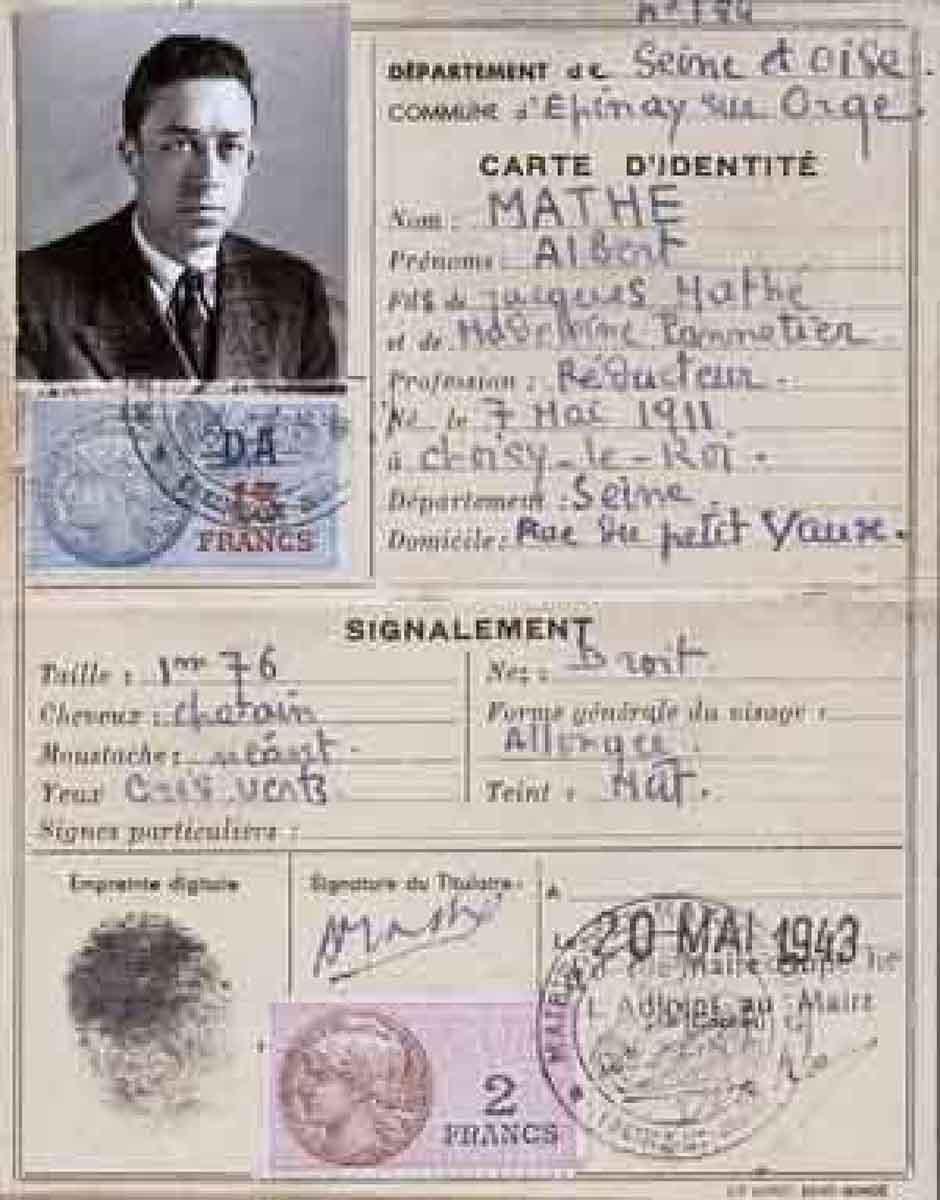 DÉPARTEMENT de Seine et Oise.
COMMUNE d'Epinay sur Orge.
CARTE D'IDENTITÉ
Nom: MATHE
Prénoms: Albert
Fils de Jacques Mathe
et de
Profession: Rédacteur.
Né le 7 Mai 1911
à Choisy-le-Roi.
Département: Seine.
Domicile: Rue du petit Vaux.
DA
13
FRANCS
SIGNALEMENT
Taille: 1m 76
Cheveux: chatain
Moustache: néant.
Yeux Gris verts
Signes particuliers:
Nez: Droit
Forme générale du visage:
Allongée.
Teint: Mat.
Empreinte digitale
Signature du Titulaire:
AMathé
A
20 MAI 1943
L'Adjoint au Maire
MAIRIE
2
FRANCS